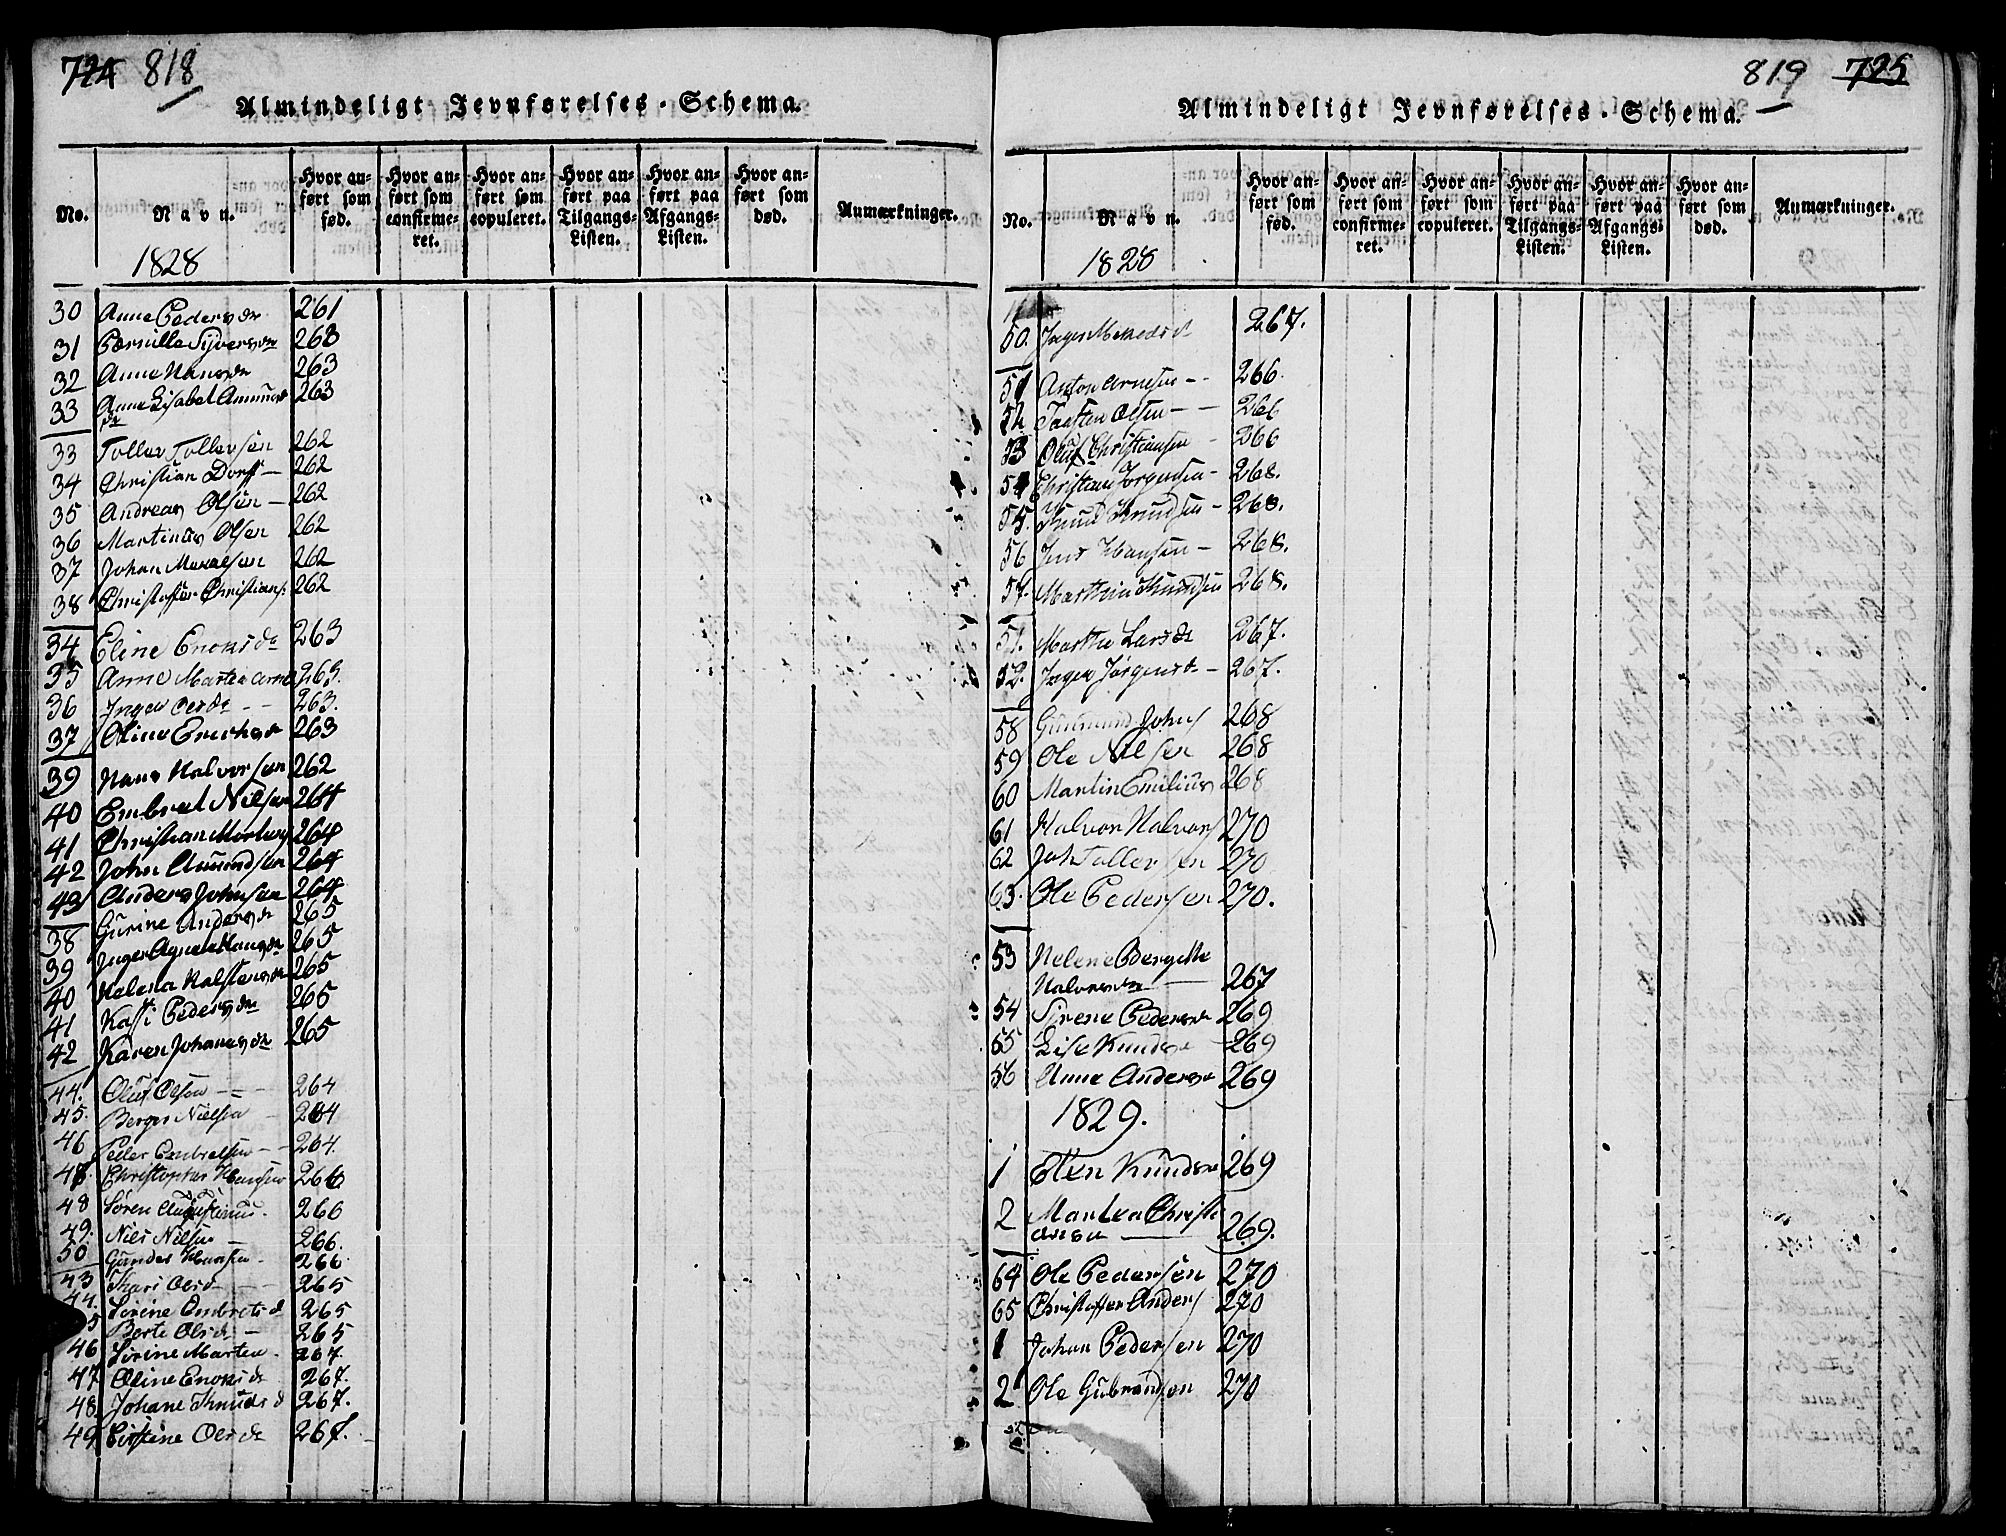 724 818
Almindeligt Jevnførelses-Schema.
No. Navn. Hvor anført som fød. Hvor anført som confirmeret. Hvor anført som copuleret. Hvor anført paa Tilgangs-Listen. Hvor anført paa Afgangs-Listen. Hvor anført som død. Anmærkninger.
1828
30 Anne Pedersdr 261
31 Pernille Syversdr 263
32 Anne Hansdr 263
33 Anne Lisabet Amunds 263
dr
33 Toller Tollersen 262
34 Christian Dorff 262
35 Andreas Olsen 262
36 Martinus Olsen 262
37 Johan 262
38 Christoffer Christians: 262
34 Eline Enoksdr 263
35 Anne Martea Arne 263.
36 Inger Olsdr 263.
37 Oline 263
39 Hans Halvorsen 262
40 Embret Nilsen 264
41 Christian 264
42 John Amundsen 264
43 Anders Johnsen 264
38 Gurine Andersdr 265
39 Inger Agnete Hansdr 265
40 Helena Halstensdr 265
41 Kasti Pedersdr 265
42 Karen Johanesdr 265
44. Oluf Olsen 264
45. Berger Nielsen 264
46 Peder Embretsen 264.
47. Christopher Hansen 266
48 Søren Augustinus 266
49. Niels Nielsen 266.
50 Gunder Hansen 266
43 Kari Olsd 265
44. Sørine Embretsd 265
5 Berte Olsdr 265
46 Sørine Marten 267
47 Oline Enoksdr 267.
48. Johane Knudsd 267.
49 Cirstine Olsdr 267.
819 725
Almindeligt Jevnførelses-Schema.
No. Navn. Hvor anført som fød. Hvor anført som confirmeret. Hvor anført som copuleret. Hvor anført paa Tilgangs-Listen. Hvor anført paa Afgangs-Listen. Hvor anført som død. Anmærkninger.
1828
50. Inger 267.
51 Anton Arnesen 266.
52 Olsen 266
53 Oluf Christiansen 266
54 Christian Jørgensen 268.
55. Knud Knudsen 268.
56 Jens Hansen 268.
57. Marthin Knudsen 268.
51. Marthe Larsdr 267.
52. Inger Jørgensdr 267.
58 Gudmund Johns 268
59 Ole Nilsen 268
60 Martin Emilius 268
61 Halvor Halvors 270
62 Joh Tollersen 270
63. Ole Pedersen 270.
53 Helene Bergitte
Halvorsdr 267
54 Sirene Pedersdr 269
55 Lise Knudsdr 269
56 Anne Andersdr 269
1829.
1 Elen Knudsdr 269
2 Martea Christi
ansdr 269.
64 Ole Pedersen 270
65 Christoffer Anders 270
1 Johan Pedersen 270
2 Ole Gubrandsen 270